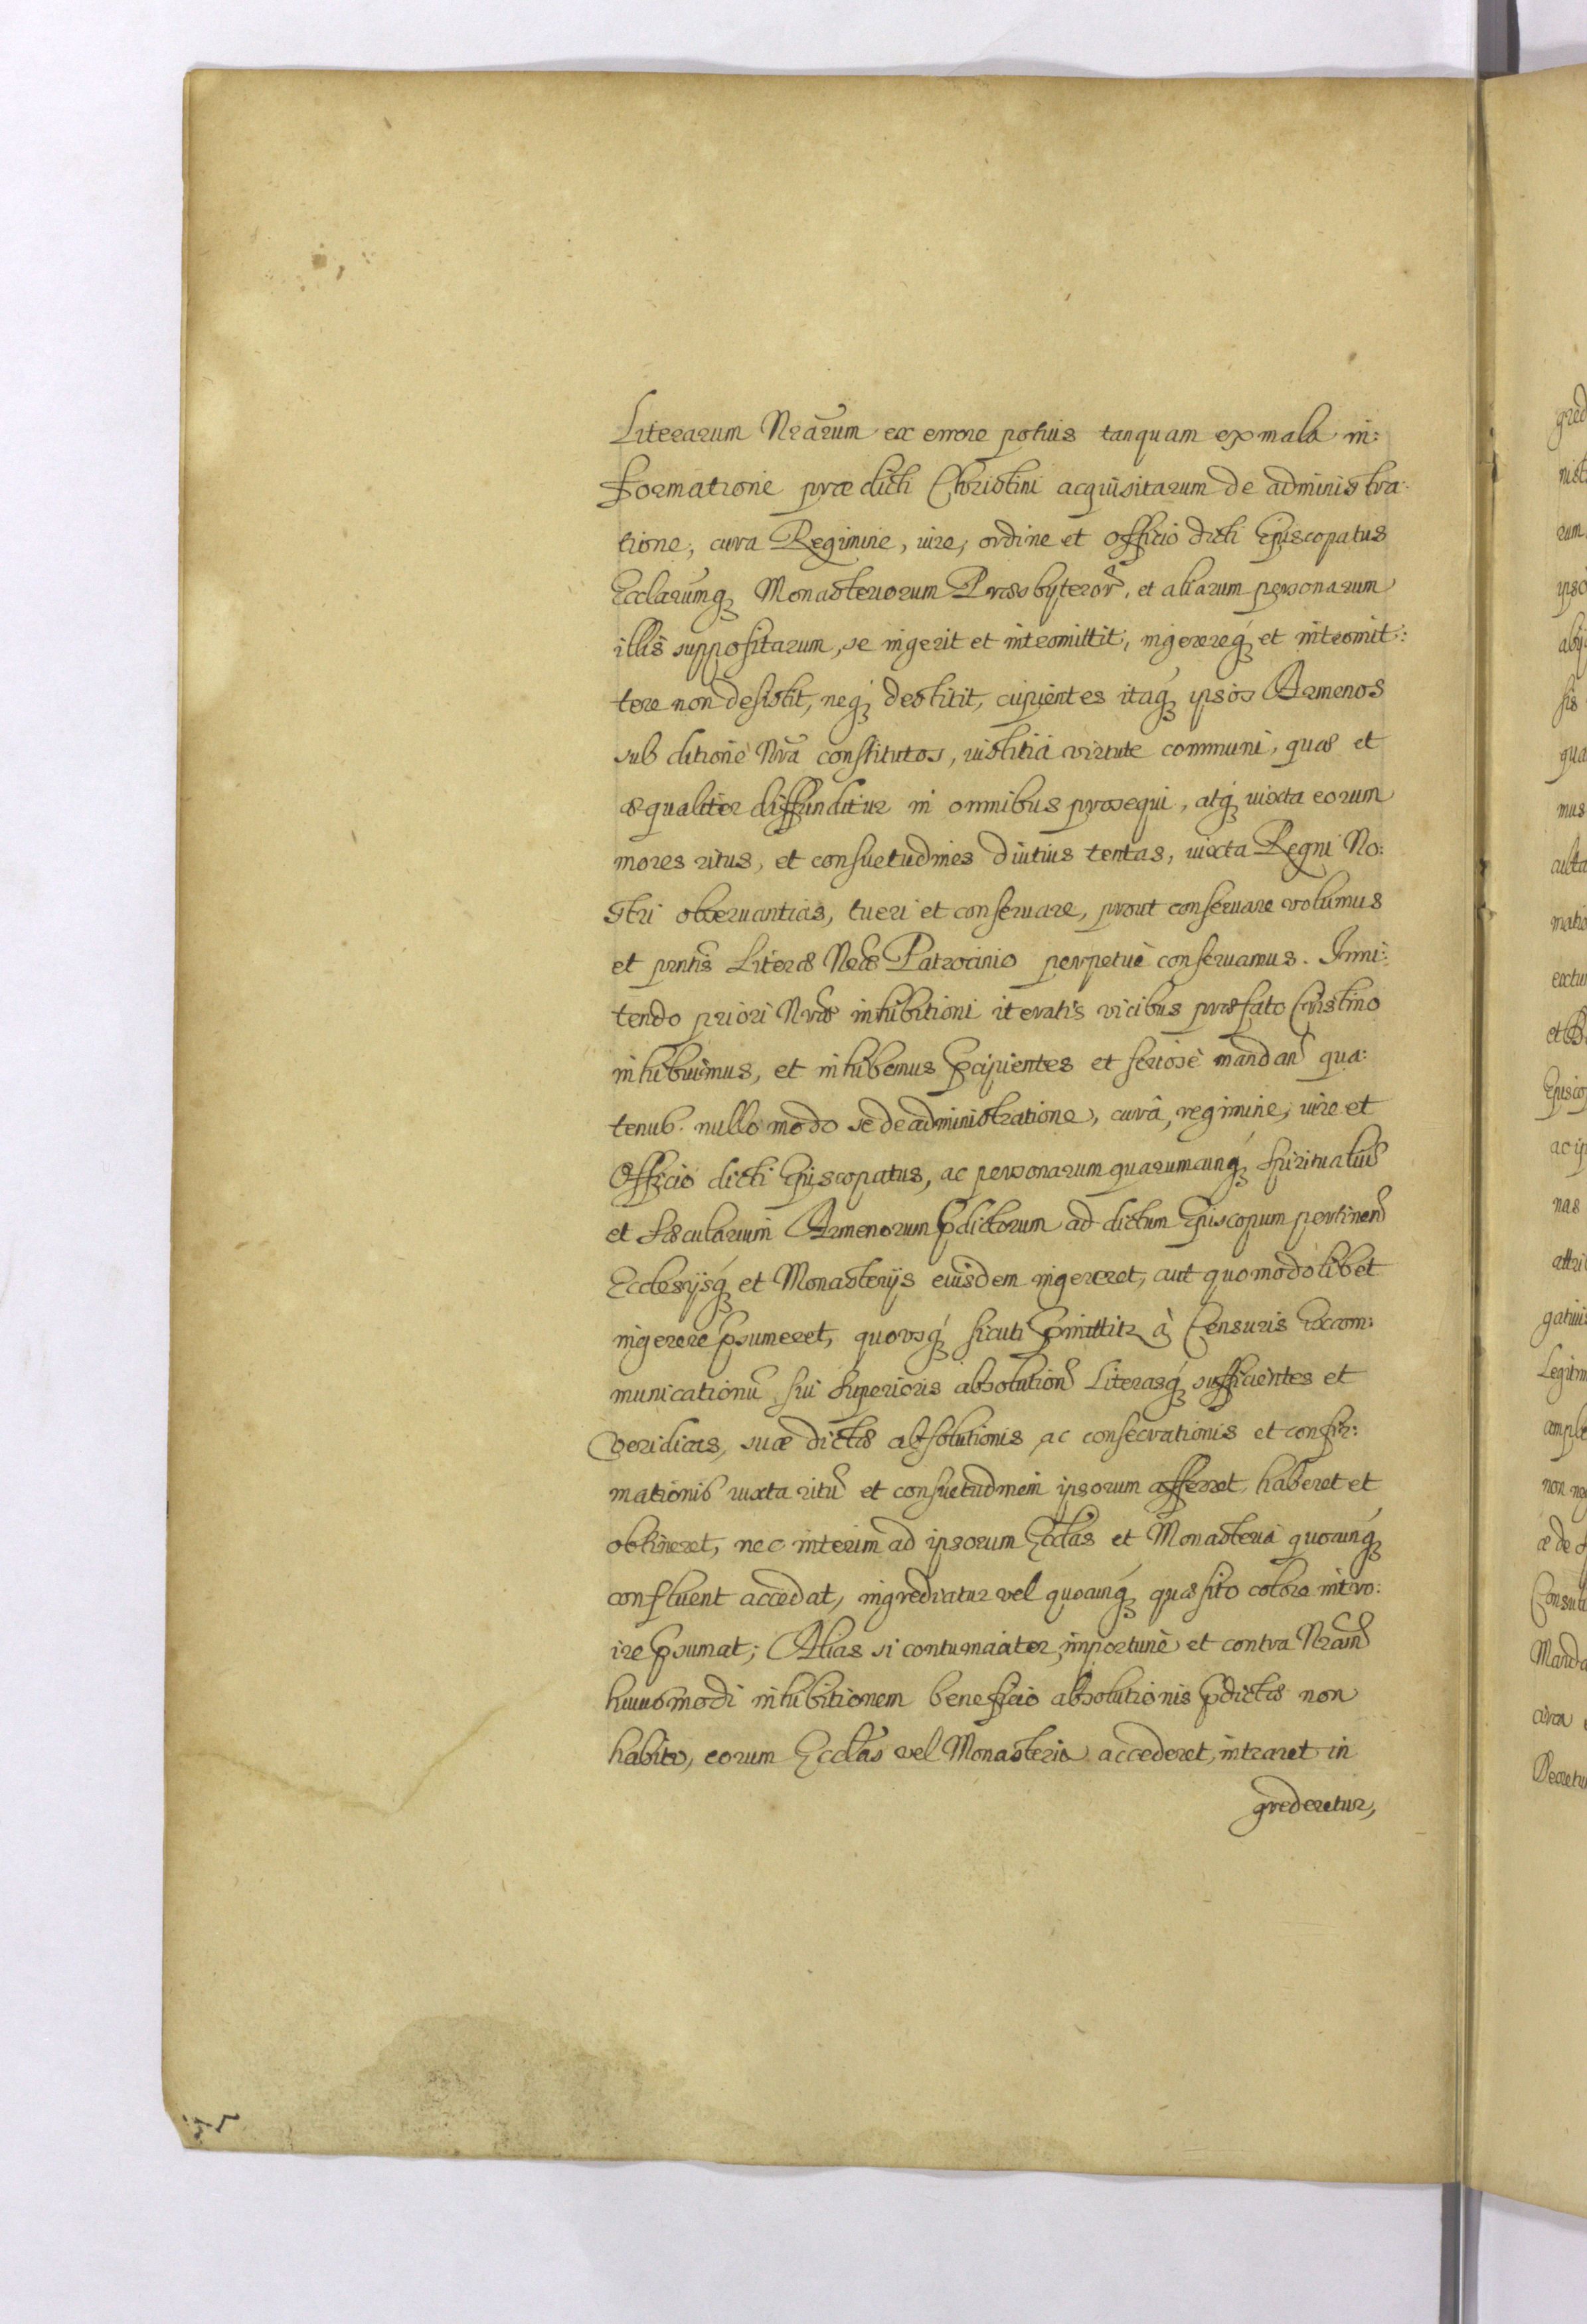 Literarum Nrãrum ex errore potius tanquam ex mala in:
formatione præ dicti Christini acquisitarum de administra:
tione, cura Regimine, iure, ordine et officio dicti Episcopatus
Ecclarumq; Monasteriorum Præsbyterorũ, et aliarum personarum
illis suppositarum, se ingerit et intromittit, ingerereq; et intromit:
tere non desistit, neq; destitit, cupientes itaq; ipsos Armenos
sub ditione Nrã constitutos, iustitiá virtute communi, quæ et
æqualiter diffunditur in omnibus prosequi, atq; iuxta eorum
mores ritus, et consuetudines diutius tentas, iuxta Regni No:
stri observantias, tueri et conseruare, prout conseruare volumus
et pñtis Literæ Nræ Patrocinio perpetuè conseruamus. Inni:
tendo priori Nræ inhibitioni iteratis vicibus præfato Cristino
inhibuimus, et inhibemus p̃cipientes et seriosè mandañ qua:
tenus nullo modo se de administratione, curâ, regimine, iure et
Officio dicti Episcopatus, ac personarum quarumcunq; spiritualiũ
et sæcularium Armenorum p̃dictorum ad dictum Episcopum pertineñ
Ecclesijsq; et Monasterijs eiusdem ingereret, aut quomodolibet
ingerere p̃sumeret, quousq; sicuti p̃mittitr à Censuris Excom:
municationũ sui Superioris absolutioñ Literasq; sufficientes et
veridicas, suæ dictæ absolutionis ac consecrationis et confir:
mationis iuxta ritũ et consuetudinem ipsorum afferret, haberet et
obtineret, nec interim ad ipsorum Ecclãs et Monasteria quocunq;
confluent accedat, ingrediatur vel quocunq; quæsito colore intro:
ire p̃sumat; Alias si contumaciter, importunè et contra Nram̃
huiusmodi inhibitionem beneficio absolutionis p̃dictæ non
habito, eorum Ecclãs vel Monasteria accederet, intraret in
grederetur,